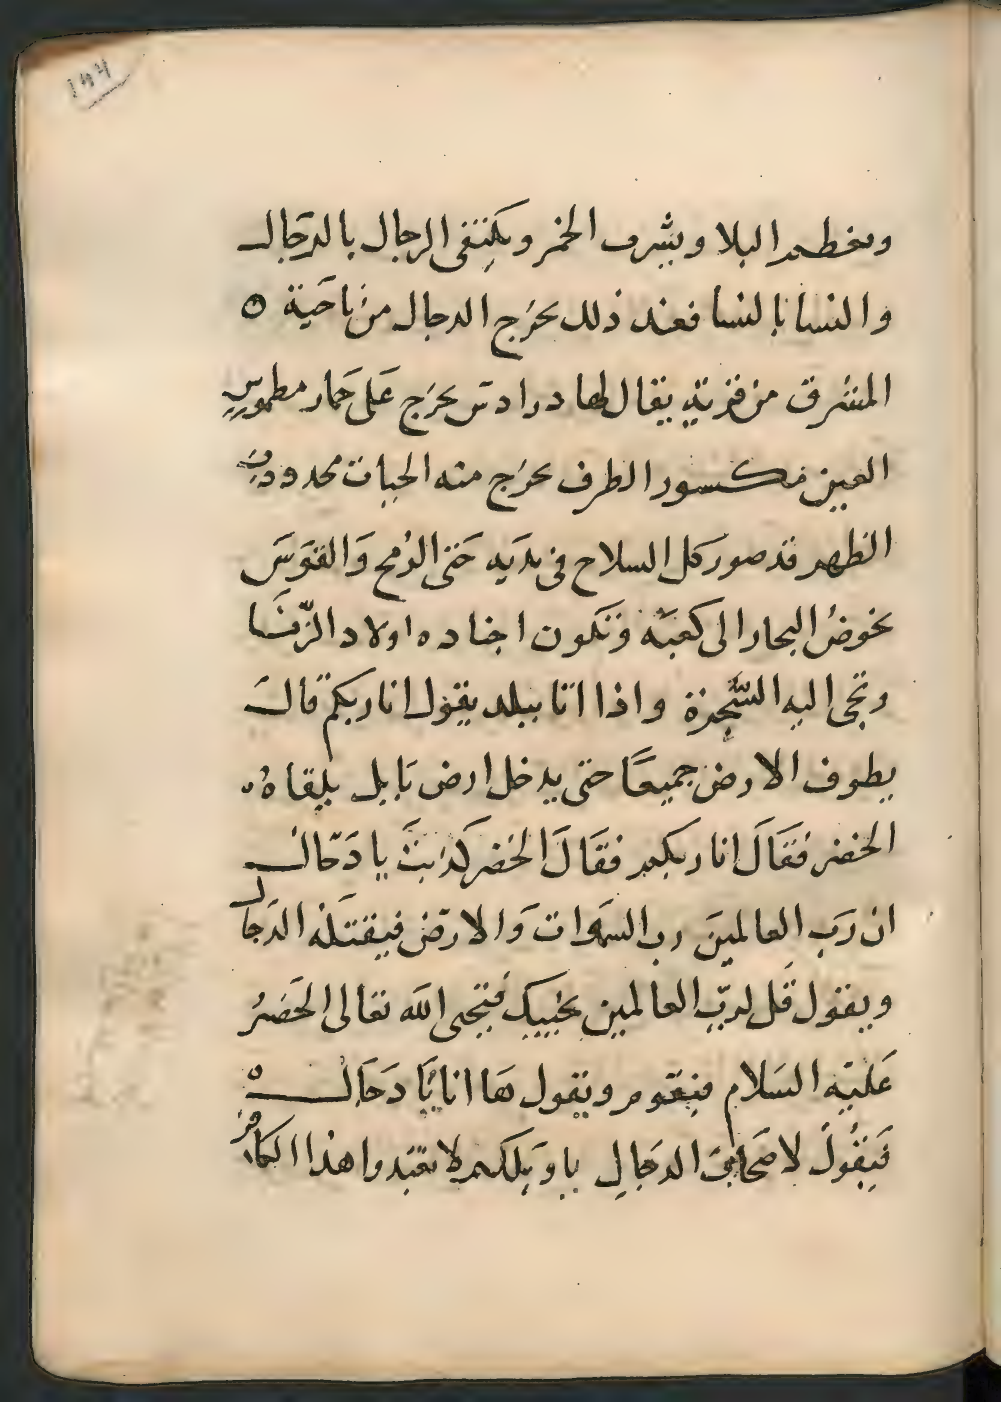 ١٩٩
ويعظم البلا ويشرب الخمر ويكتفى الرجال بالدجال
والنسا بالنسا فعند ذلك يخرج الدجال من ناحية ه
المشرق من قرية يقال لها درادس يخرج على حمار مطموس
العين مكسور الطرف يخرج منه الحيات محدودب
الظهر قد صور كل السلاح فى يديه حتى الرمح والقوس
يخوض البحار الى كعبه وتكون اجناده اولاد الزنا
وتجى اليه السحرة واذا اتا ببلد يقول انا ربكم قال
يطوف الارض جميعا حتى يدخل ارض بابل يلقاه
الخضر فقال انا ربكم فقال الخضر كذبت يا دجال
ان رب العالمين رب السموات والارض فيقتله الدجال
ويقول قل لرب العالمين يحييك فيحيى الله تعالى الخضر
عليه السلام فيقوم ويقول ها انا يا دجال ه
فيقول لاصحاب الدجال يا ويلكم لا تعبدوا هذا الكافر